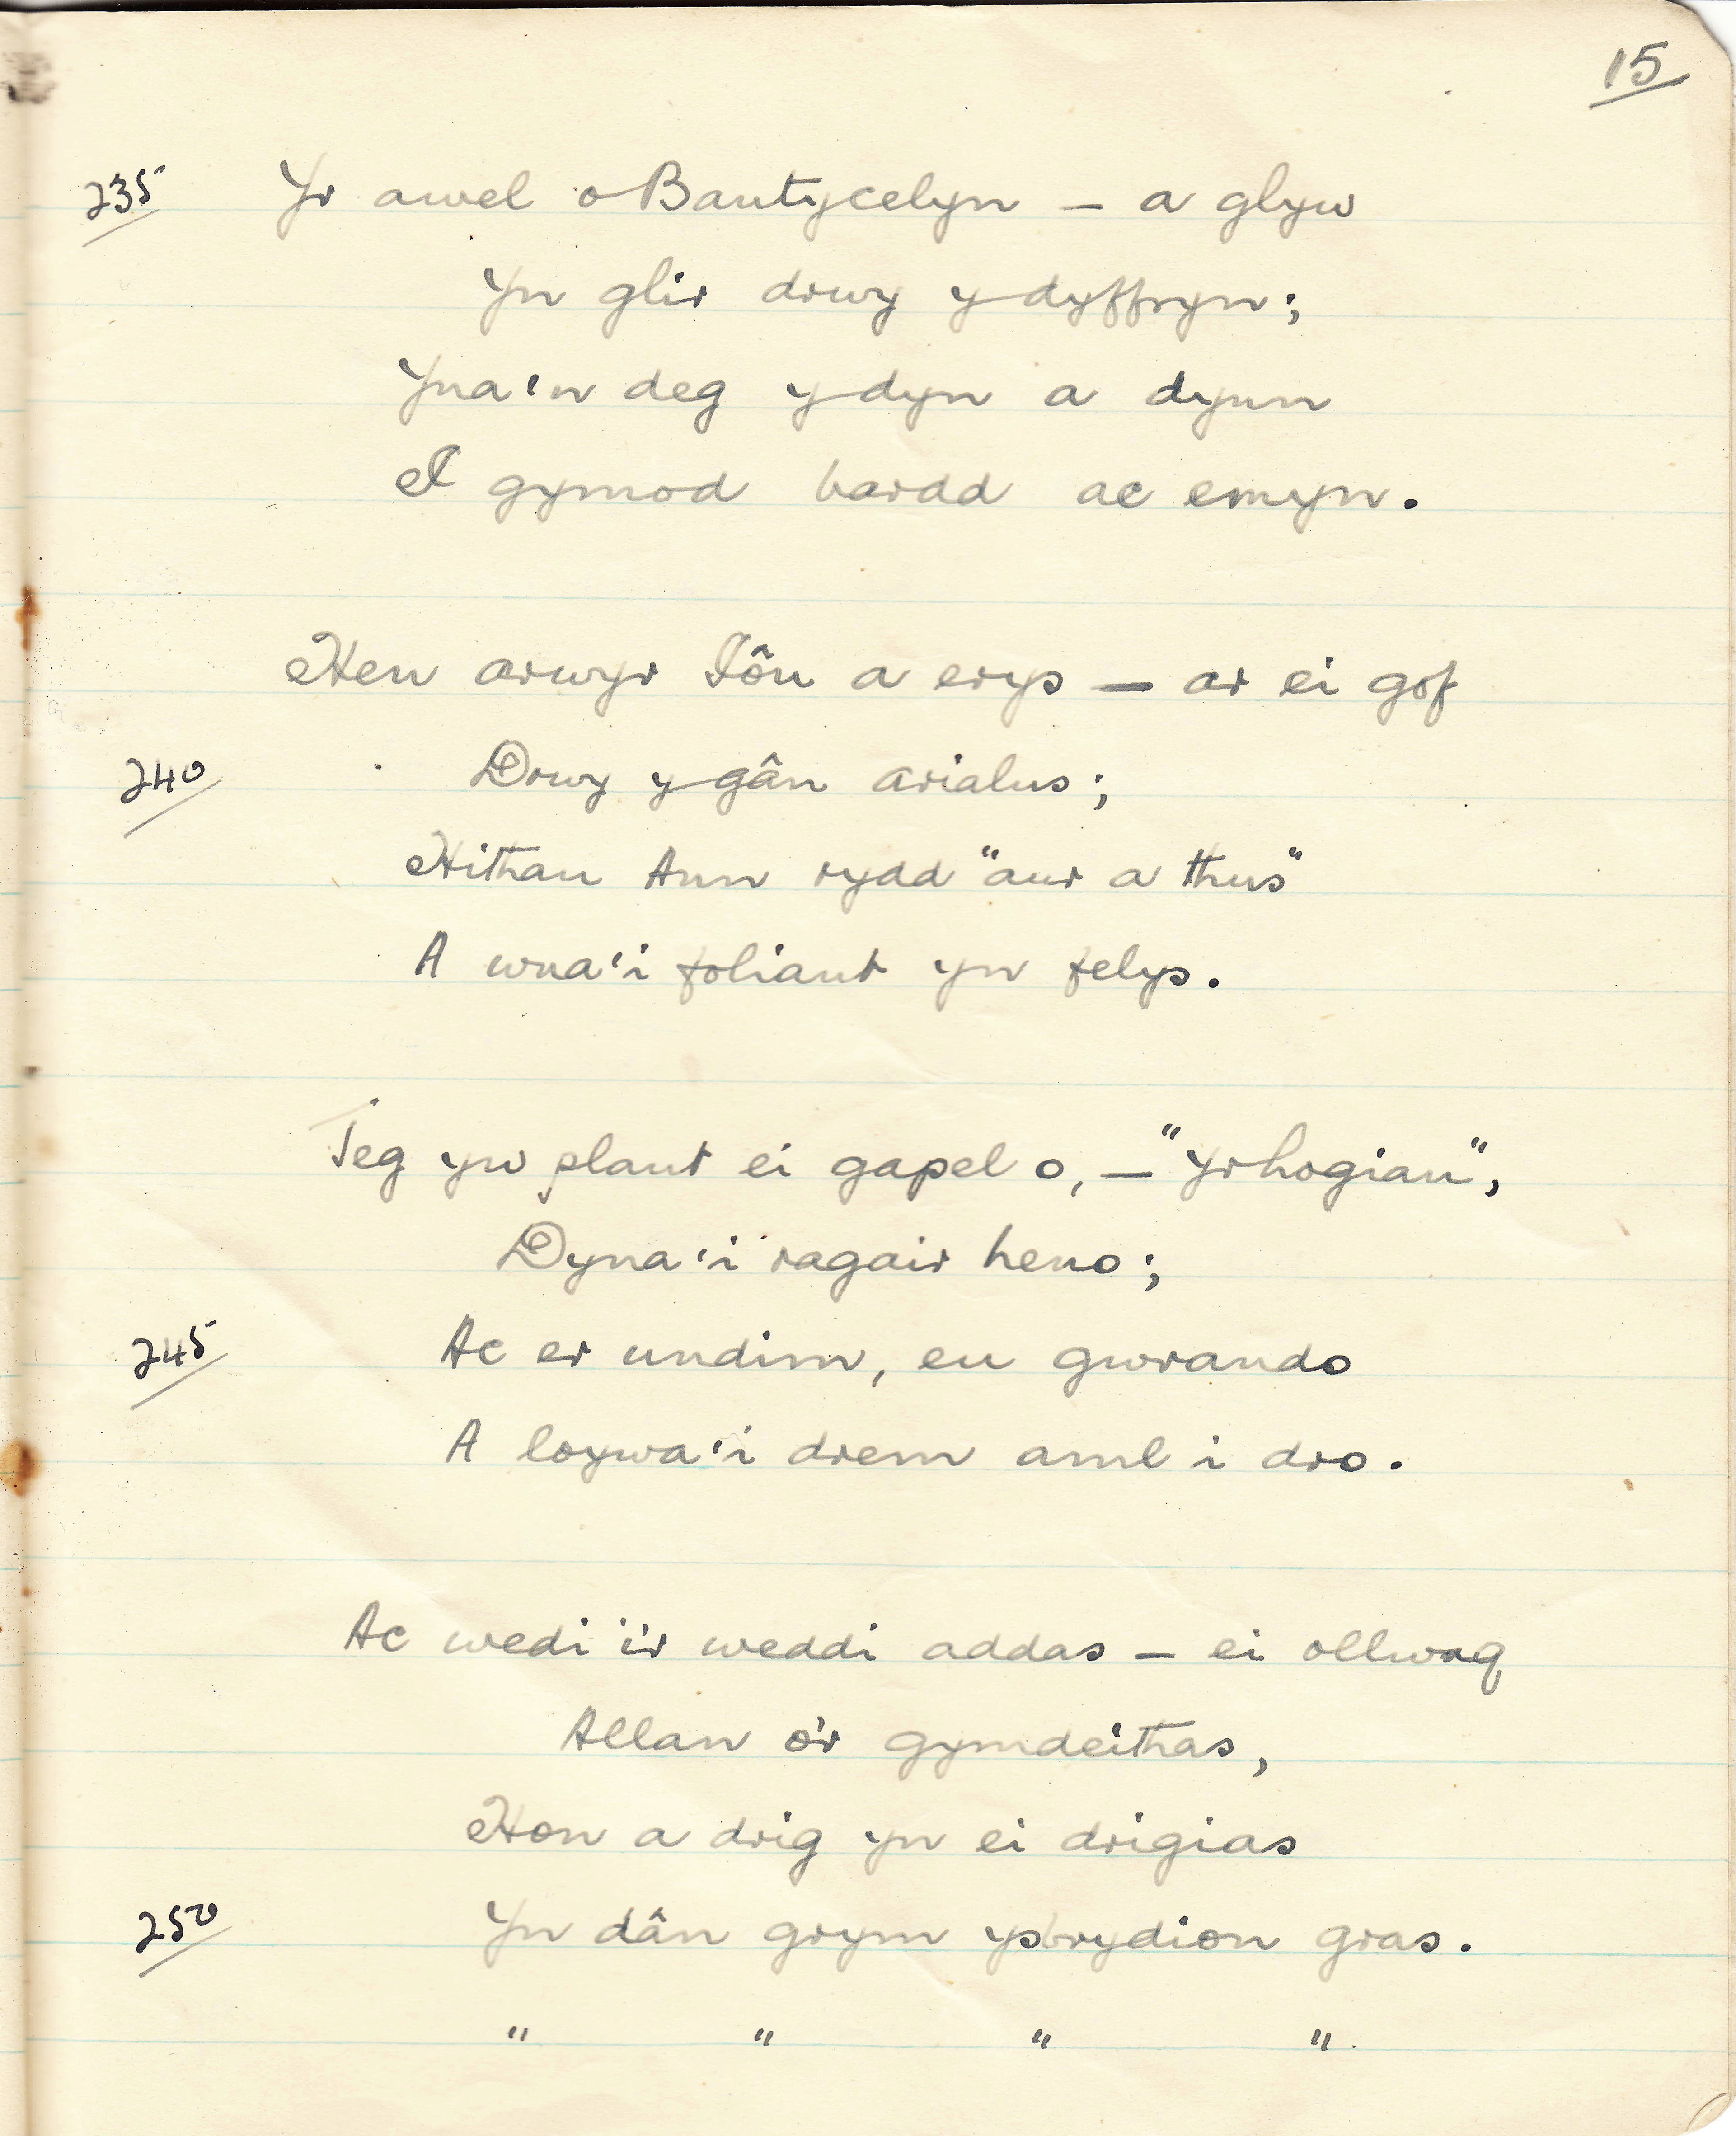 15
235 Yr awel o Bantycelyn – a glyw
Yn glir drwy y dyffryn;
Yna'n deg y dyn a dynn
I gymod bardd ac emyn.
Hen arwyr Iôn a erys – ar ei gof
240 Drwy y gân arialus;
Hithau Ann rydd "aur a thus"
A wna'i foliant yn felys.
Teg yw plant ei gapel o, – "Yr hogiau",
Dyna'i ragair heno;
245 Ac er undim, eu gwrando
A loywa'i drem aml i dro.
Ac wedi i'r weddi addas – ei ollwng
Allan o'r gymdeithas,
Hon a drig yn ei drigias
250 Yn dân grym ysbrydion gras.
" " " ".